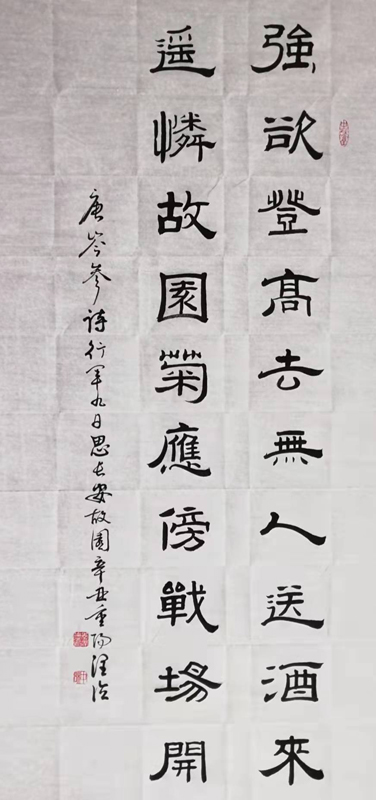 強欲登高去無人送酒來
遥憐故園菊應傍戰場開
唐岑參詩行軍九日思長安故園辛丑重陽